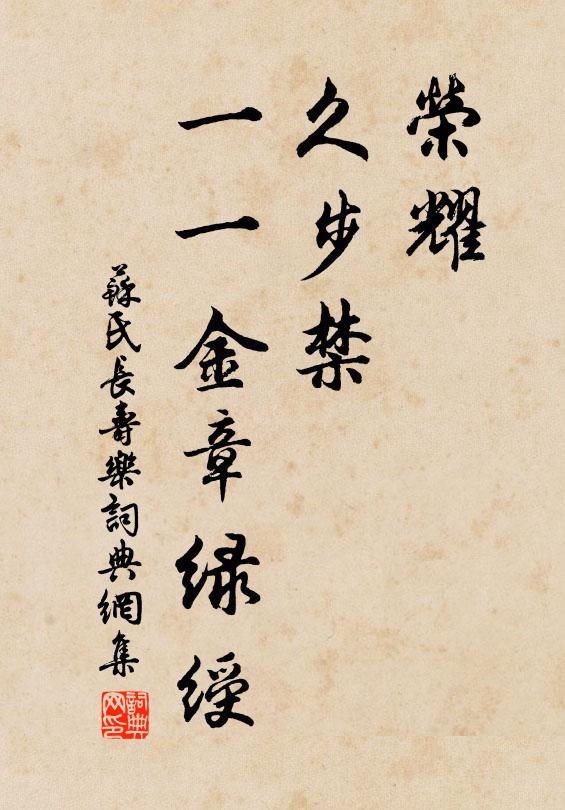 榮耀
久步禁
一一金章緑綬
蘇氏長壽樂詞典網集
詞典
网印